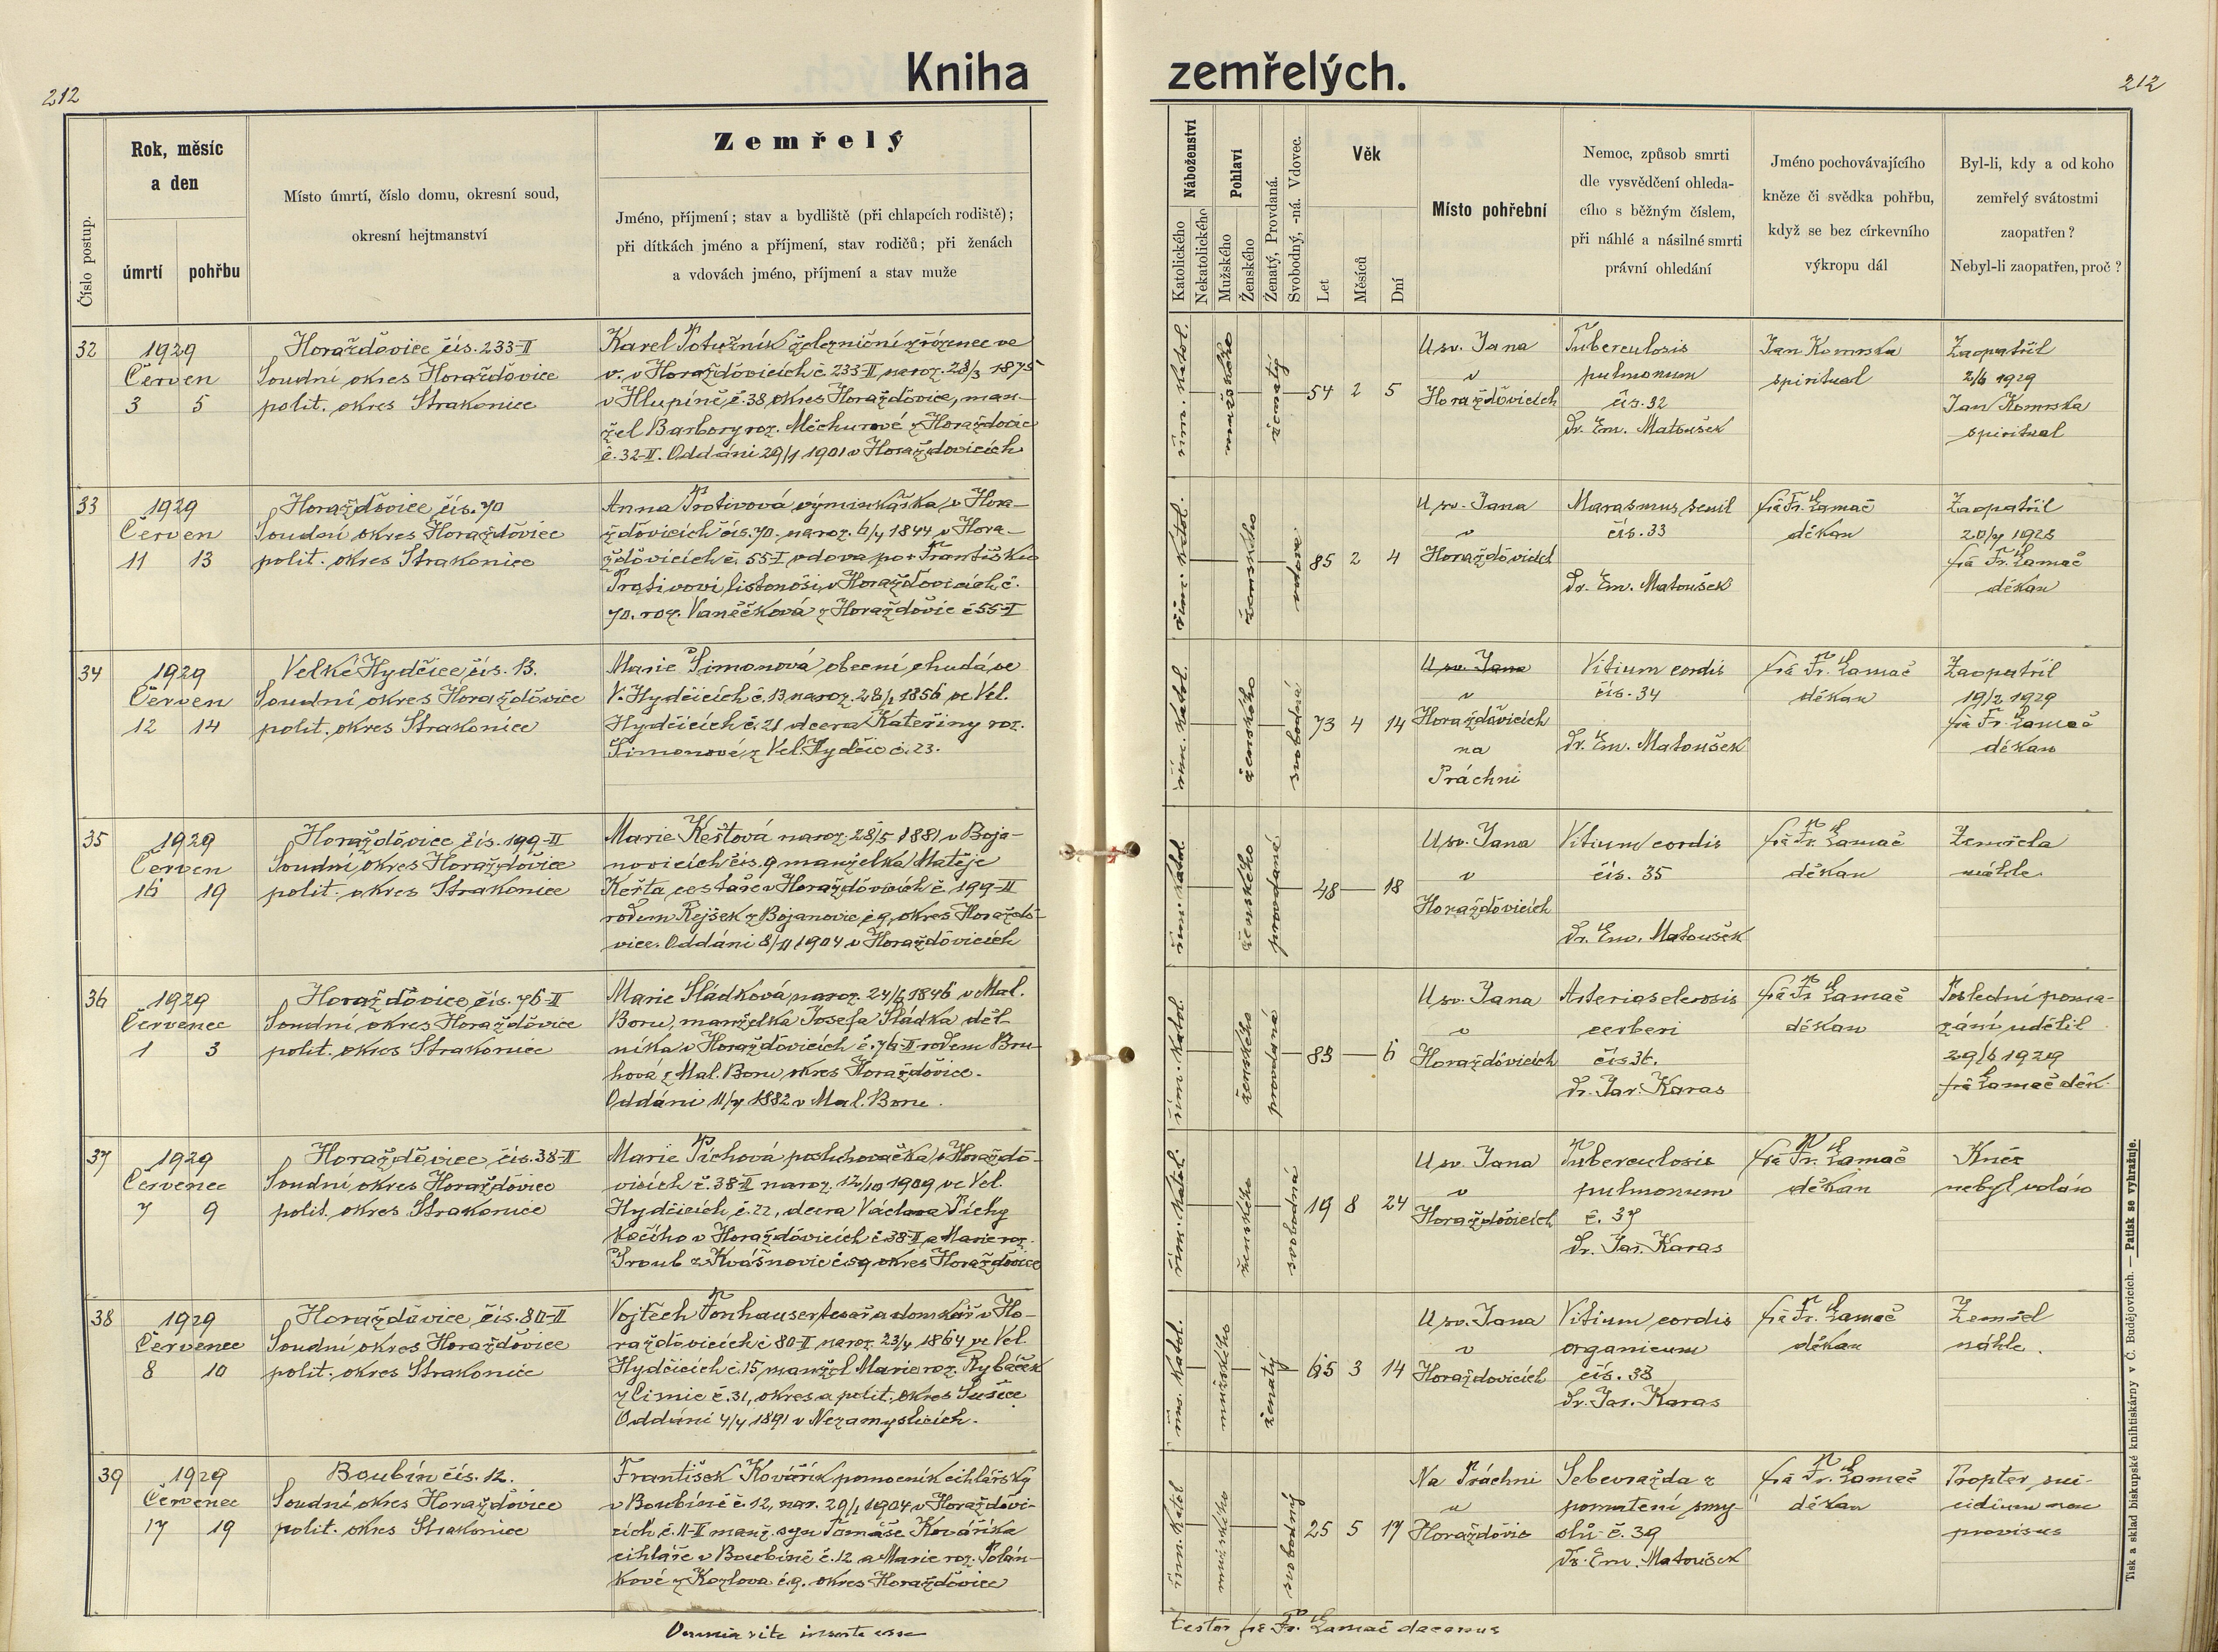 212
Kniha
zemřelých.
212
Číslo postup.
Rok, měsíc
a den
úmrtí
pohřbu
Místo úmrtí, číslo domu, okresní soud,
okresní hejtmanství
Zemřelý
Jméno, příjmení; stav a bydliště (při chlapcích rodiště);
při dítkách jméno a příjmení, stav rodičů; při ženách
a vdovách jméno, příjmení a stav muže
Náboženství
Katolického
Nekatolického
Pohlaví
Mužského
Ženského
Ženatý, Provdaná.
Svobodný, -ná. Vdovec.
Věk
Let
Měsíců
Dní
Místo pohřební
Nemoc, způsob smrti
dle vysvědčení ohleda-
cího s běžným číslem,
při náhlé a násilné smrti
právní ohledání
Jméno pochovávajícího
kněze či svědka pohřbu,
když se bez církevního
výkropu dál
Byl-li, kdy a od koho
zemřelý svátostmi
zaopatřen?
Nebyl-li zaopatřen, proč?
32
1929
Červen
3 5
Horažďovice čís. 233-II
Soudní okres Horažďovice
polit. okres Strakonice
Karel Potužník železniční zřízenec ve
v. v Horažďovicích č. 233-II, naroz. 28/3 1875
v Hlupíně č. 38 okres Horažďovice, man-
žel Barbory roz. Měchurové z Horažďovic
č. 32-II. Oddáni 29/1 1901 v Horažďovicích
řím. katol.
mužského
ženatý
54 2 5
U sv. Jana
v
Horažďovicích
Tuberculosis
pulmonum
čís. 32
Dr. Em. Matoušek
Jan Komrska
spiritual
Zaopatřil
2/6 1929
Jan Komrska
spiritual
33
1929
Červen
11 13
Horažďovice čís. 70
Soudní okres Horažďovice
polit. okres Strakonice
Anna Protivová výminkářka v Hora-
žďovicích čís. 70. naroz. 6/4 1844 v Hora-
žďovicích č. 55-I vdova po + Františku
Protivovi listonoši v Horažďovicích č.
70. roz. Vaněčková z Horažďovic č 55-I
řím. katol.
ženského
vdova
85 2 4
U sv. Jana
v
Horažďovicích
Marasmus senil
čís. 33
Dr. Em. Matoušek
frà Fr. Lamač
děkan
Zaopatřil
20/4 1928
frà Fr. Lamač
děkan
34
1929
Červen
12 14
Velké Hydčice čís. 13.
Soudní okres Horažďovice
polit. okres Strakonice
Marie Šimonová obecní chudá ve
V. Hydčicích č. 13 naroz. 28/1 1856 ve Vel.
Hydčicích č. 21 dcera Kateřiny roz.
Šimonové z Vel. Hydčic č. 23.
řím. katol.
ženského
svobodná
73 4 14
U sv. Jana
v
Horažďovicích
na
Práchni
Vitium cordis
čís. 34
Dr. Em. Matoušek
frà Fr. Lamač
děkan
Zaopatřil
19/2 1929
frà Fr. Lamač
děkan
35
1929
Červen
16 19
Horažďovice čís. 199-II
Soudní okres Horažďovice
polit. okres Strakonice
Marie Keřtová naroz. 28/5 1881 v Boja-
novicích čís. 9 manželka Matěje
Keřta cestaře v Horažďovicích č. 199-II
rodem Rejšek z Bojanovic č 9, okres Horažďo-
vice. Oddáni 8/II 1904 v Horažďovicích
řím. katol.
ženského
provdaná
48 — 18
U sv. Jana
v
Horažďovicích
Vitium cordis
čís. 35
Dr. Em. Matoušek
frà Fr. Lamač
děkan
Zemřela
náhle.
36
1929
Červenec
1 3
Horažďovice, čís. 76-II
Soudní okres Horažďovice
polit. okres Strakonice
Marie Sládková, naroz. 24/6 1846 v Mal.
Boru, manželka Josefa Sládka děl-
níka v Horažďovicích č. 76-II rodem Bru-
hova z Mal. Boru, okres Horažďovice.
Oddáni 11/7 1882 v Mal. Boru.
řím. katol.
ženského
provdaná
83 — 6
U sv. Jana
v
Horažďovicích
Arteriosclerosis
cerberi
čís 36.
Dr. Jar. Karas
frà Fr Lamač
děkan
Poslední poma-
zání udělil
29/6 1929
frà Lamač děk.
37
1929
Červenec
7 9
Horažďovice čís. 38-II
Soudní okres Horažďovice
polit. okres Strakonice
Marie Píchová posluhovačka v Horažďo-
vicích č. 38-II naroz. 12/10 1909 ve Vel.
Hydčicích č. 22, dcera Václava Píchy
kočího v Horažďovicích č 38-II a Marie roz.
Sroub z Kvášňovic čís 9 okres Horažďovice
řím. katol.
ženského
svobodná
19 8 24
U sv. Jana
v
Horažďovicích
Tuberculosis
pulmonum
č. 37
Dr. Jar. Karas
frà Fr. Lamač
děkan
Kněz
nebyl volán
38
1929
Červenec
8 10
Horažďovice čís. 80-II
Soudní okres Horažďovice
polit. okres Strakonice
Vojtěch Fonhauser tesař a domkář v Ho-
ražďovicích č 80-II naroz. 23/4 1864 ve Vel.
Hydčicích č. 15 manžel Marie roz. Rybáček
z Čimic č. 31, okres a polit. okres Sušice
Oddáni 4/7 1891 v Nezamyslicích.
řím. katol.
mužského
ženatý
65 3 14
U sv. Jana
v
Horažďovicích
Vitium cordis
organicum
čís. 38
Dr. Jar. Karas
frà Fr. Lamač
děkan
Zemřel
náhle.
39
1929
Červenec
17 19
Boubín čís. 12.
Soudní okres Horažďovice
polit. okres Strakonice
František Kovářík pomocník cihlářský
v Boubíně č. 12, nar. 29/1 1904 v Horažďovi-
cích č. 11-II manž. syn Tomáše Kováříka
cihláře v Boubíně č. 12 a Marie roz. Polán-
kové z Kozlova č. 9. okres Horažďovice
řím. katol
mužského
svobodný
25 5 17
Na Práchni
u
Horažďovic
Sebevražda z
pomatení smy-
slů č. 39
Dr. Em. Matoušek
frà Fr. Lamač
děkan
Propter sui-
cidium non
provisus
Omnia rite inserta esse
testor frà Fr. Lamač decanus
Tisk a sklad biskupské knihtiskárny v Č. Budějovicích. — Patisk se vyhražuje.